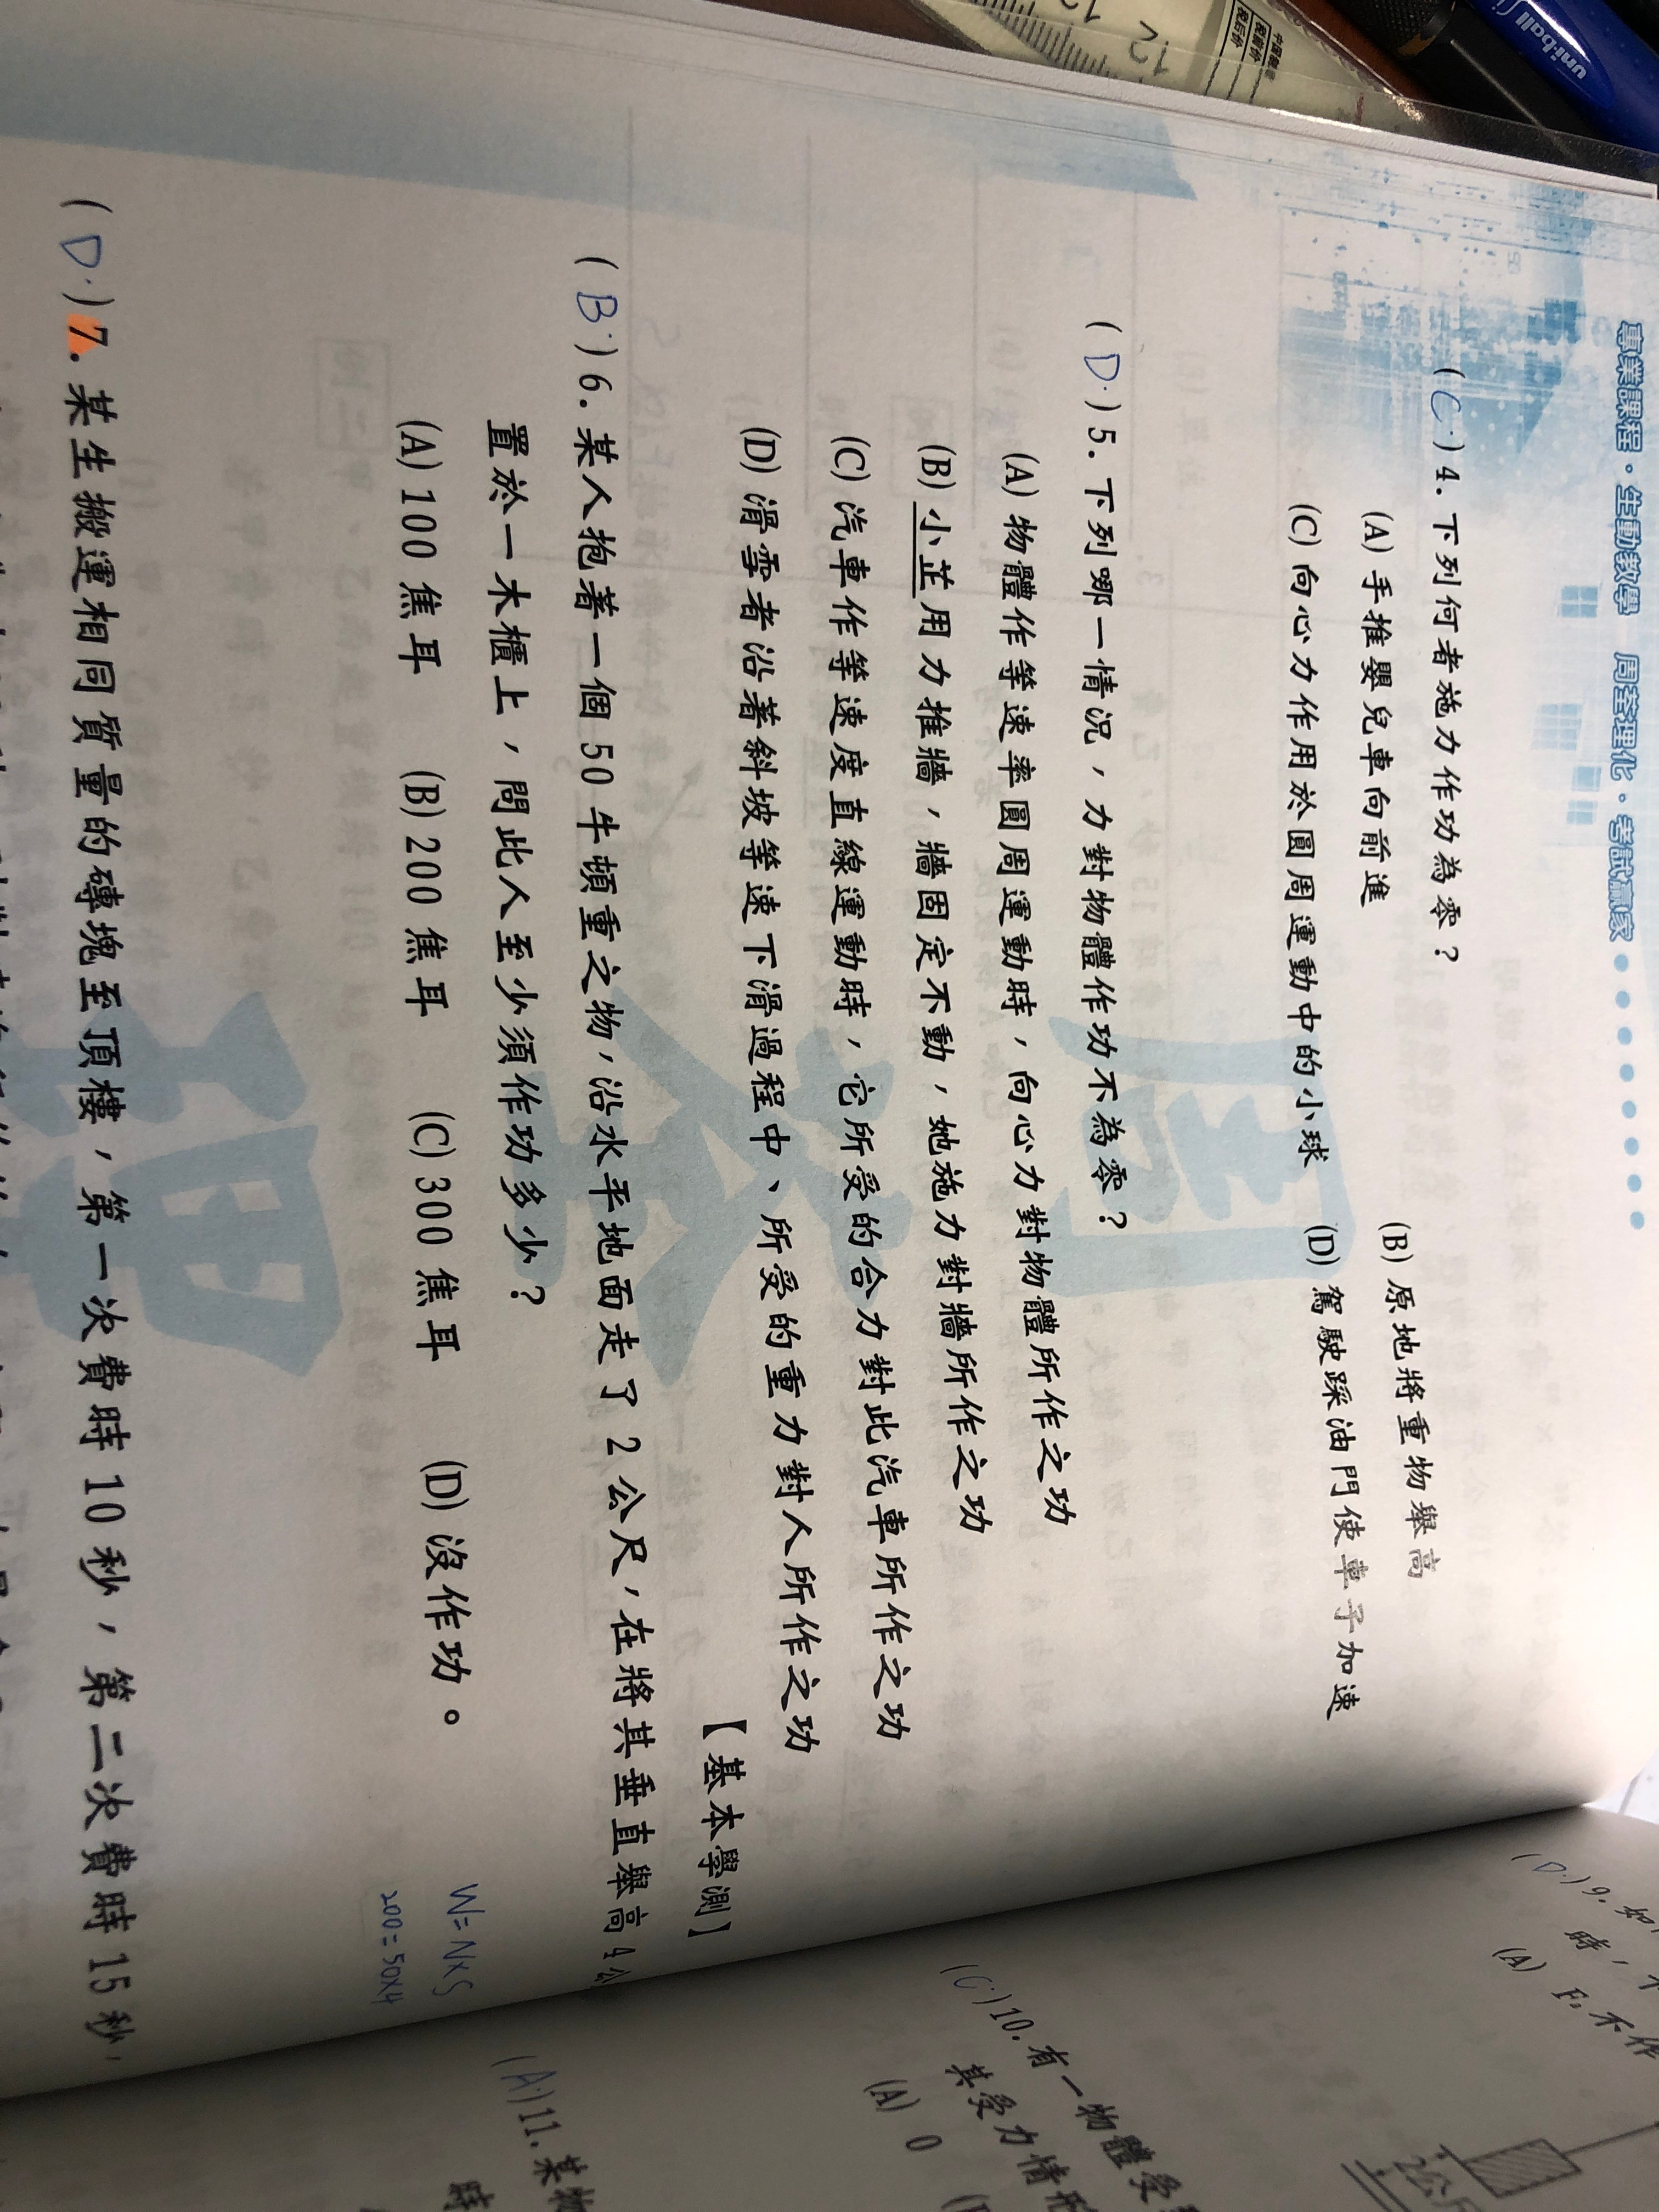 專業課程・生動教學　周荃理化・考試贏家
(C.) 4. 下列何者施力作功為零？
(A) 手推嬰兒車向前進　(B) 原地將重物舉高
(C) 向心力作用於圓周運動中的小球　(D) 駕駛踩油門使車子加速
(D.) 5. 下列哪一情況，力對物體作功不為零？
(A) 物體作等速率圓周運動時，向心力對物體所作之功
(B) 小芷用力推牆，牆固定不動，她施力對牆所作之功
(C) 汽車作等速度直線運動時，它所受的合力對此汽車所作之功
(D) 滑雪者沿著斜坡等速下滑過程中、所受的重力對人所作之功
【基本學測】
(B.) 6. 某人抱著一個 50 牛頓重之物，沿水平地面走了 2 公尺，在將其垂直舉高 4 公
置於一木櫃上，問此人至少須作功多少？
(A) 100 焦耳　(B) 200 焦耳　(C) 300 焦耳　(D) 沒作功。
W=N×S
200=50×4
(D.) 7. 某生搬運相同質量的磚塊至頂樓，第一次費時 10 秒，第二次費時 15 秒，
(D.) 9. 如
時，
(A) F₁ 不作
(C.) 10. 有一物體受
其受力情形
(A) 0
(A.) 11. 某物
時
uni-ball
12